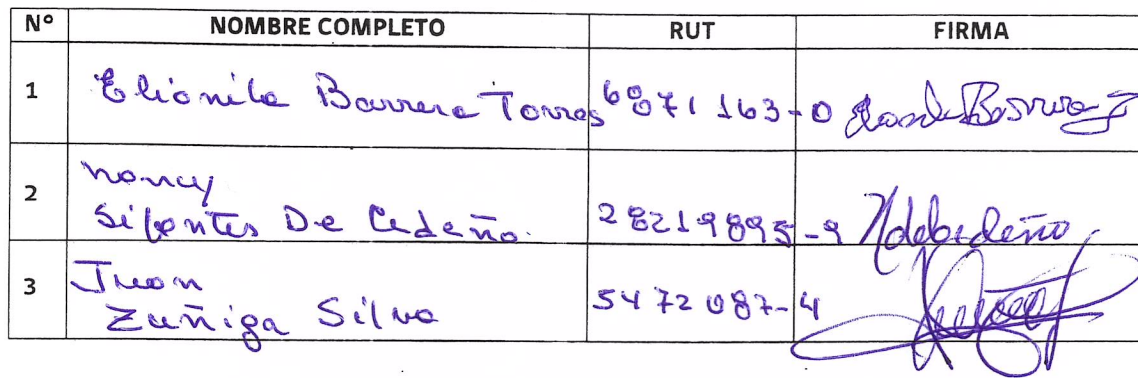 Nº NOMBRE COMPLETO RUT FIRMA
1 Elionila Barrera Torres 6871163-0
2 Nancy
Sifontes De Cedeño. 28219895-9 NdeCedeño
3 Juan
Zuñiga Silva 5472087-4